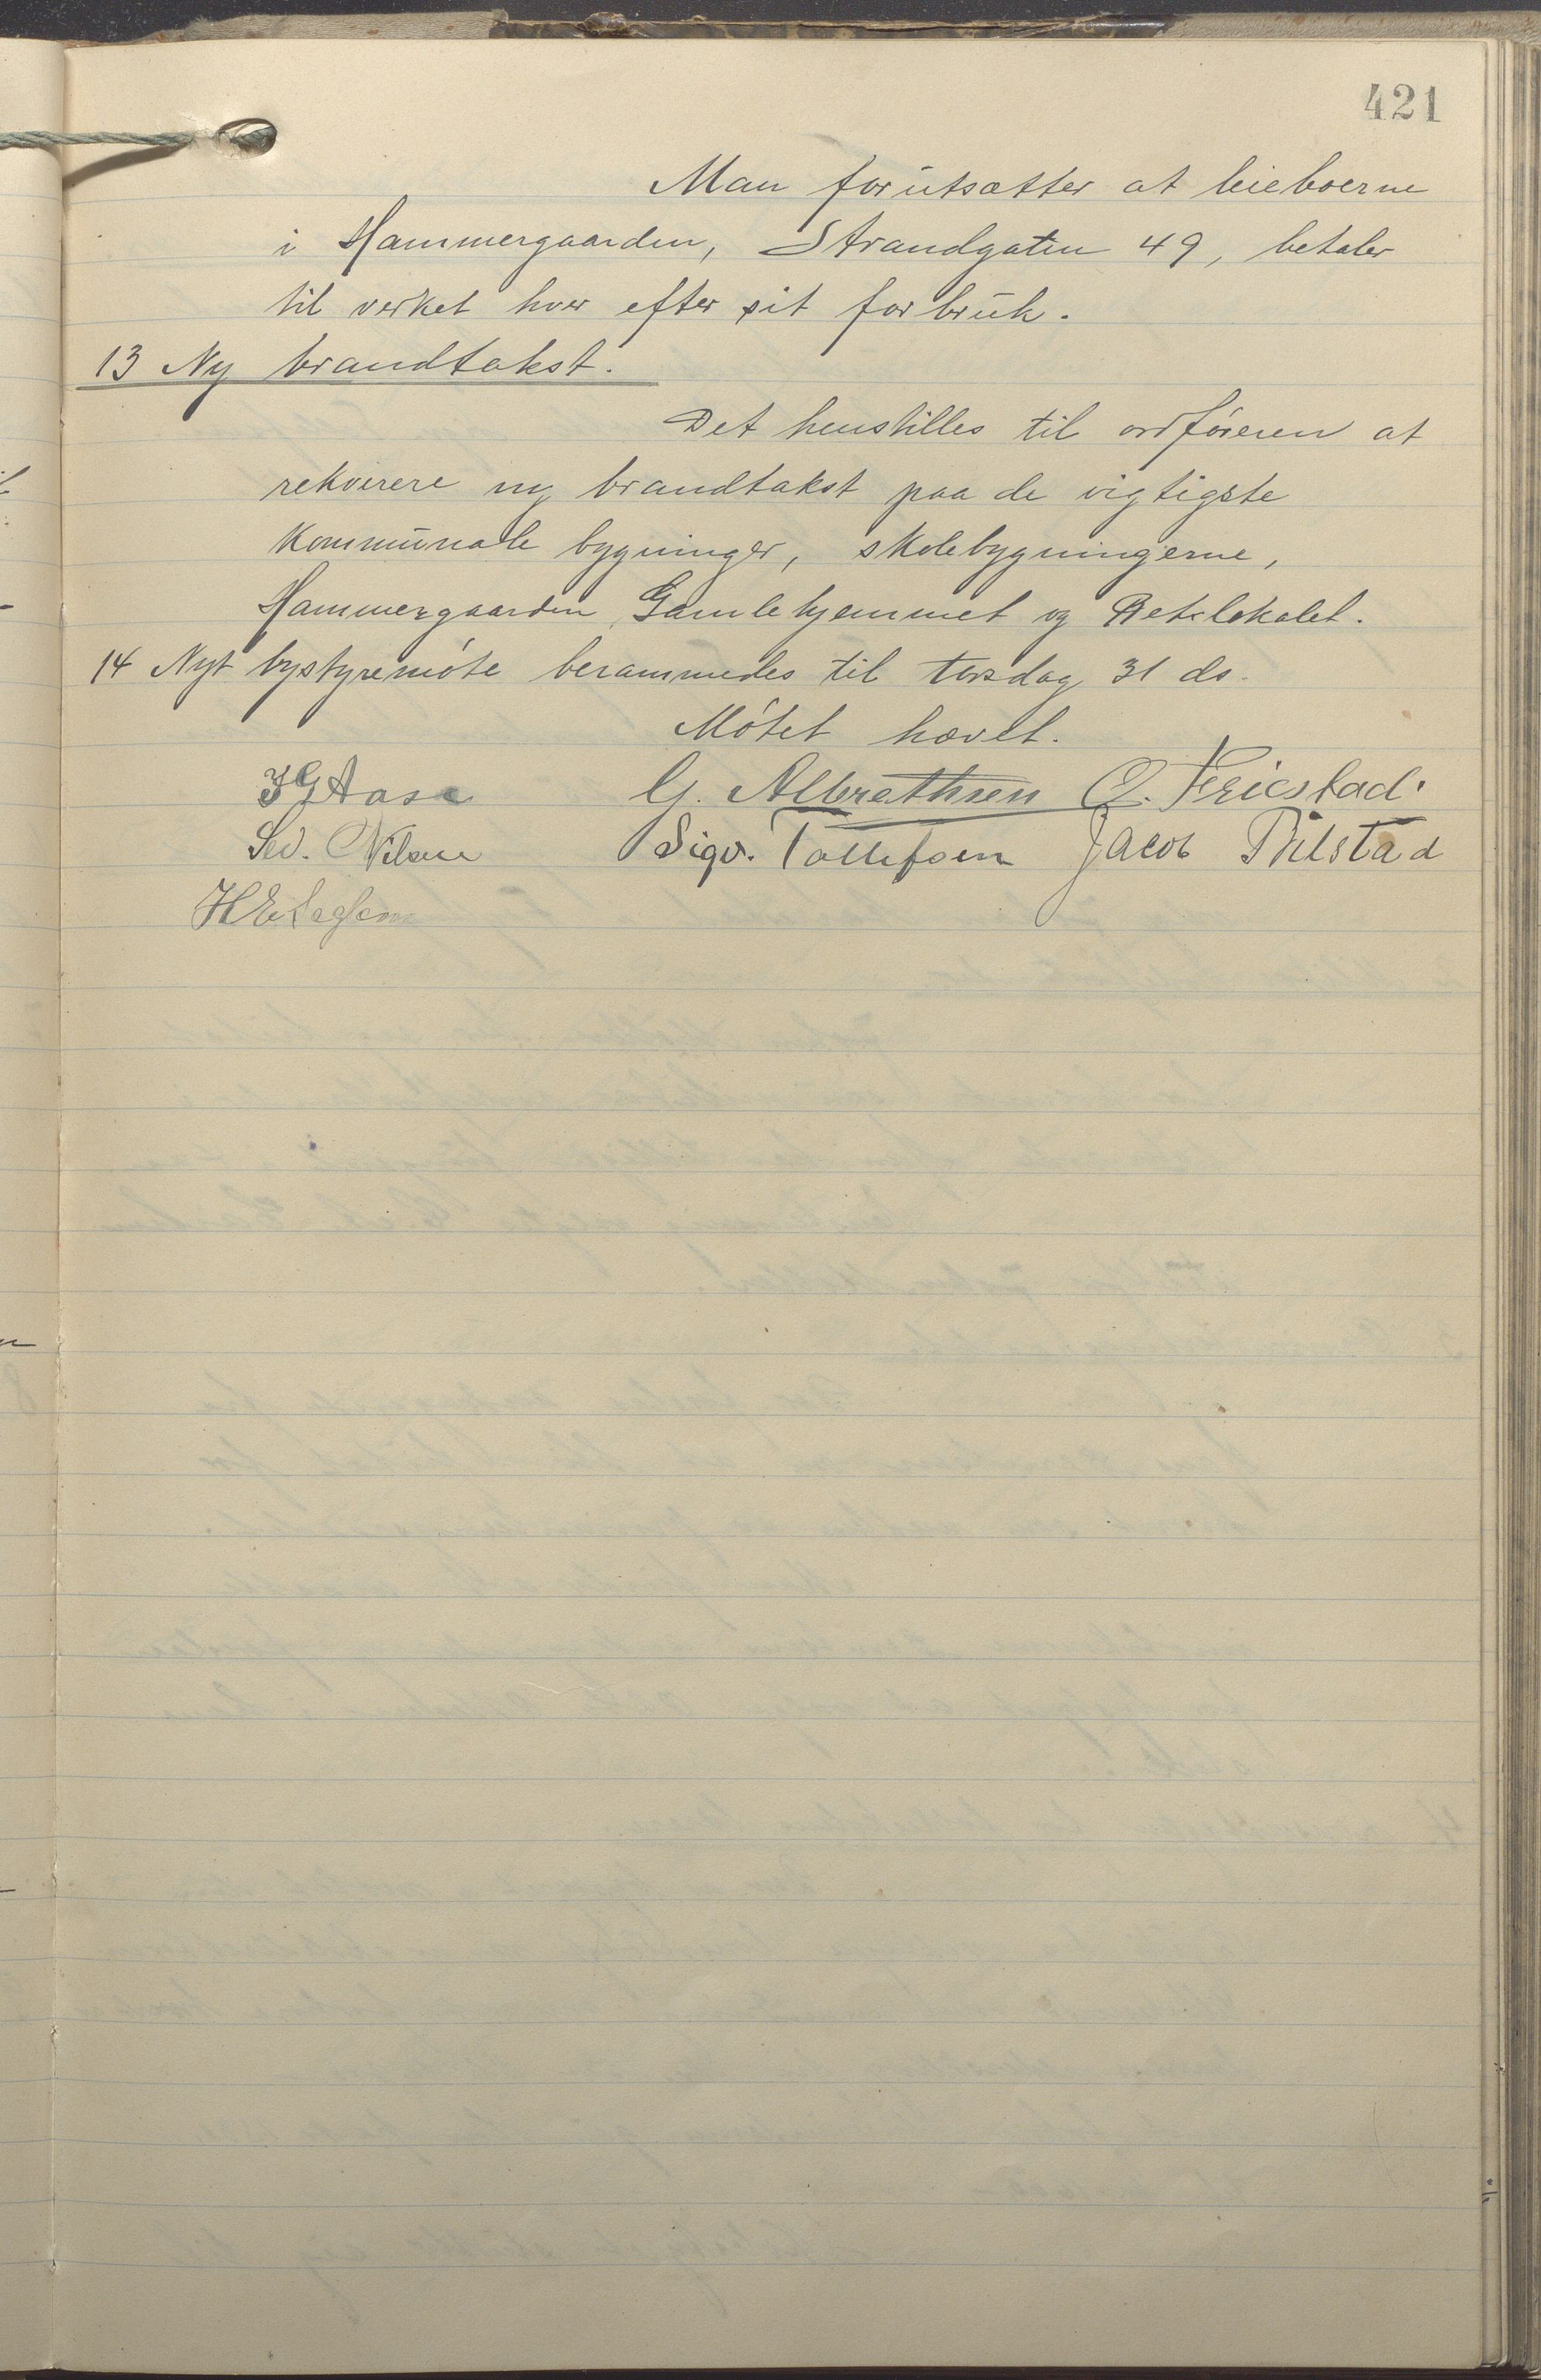 421
Man forutsætter at leieboerne
i Hammergaarden, Strandgaten 49, betaler
til verket hver efter sit forbruk.
13 Ny brandtakst.
Det henstilles til ordføreren at
rekvirere ny brandtakst paa de vigtigste
kommunale bygninger, skolebygningerne,
Hammergaarden, Gamlehjemmet og Retslokalet.
14 Nyt bystyremøte berammedes til torsdag 31 ds.
Møtet hævet.
G. Albrethsen
Sigv. Tollefsen Jacob